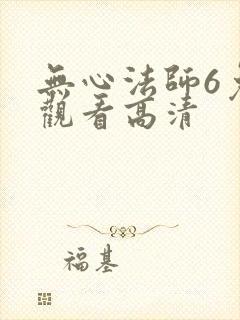 無心法師6免
觀看高清
福基